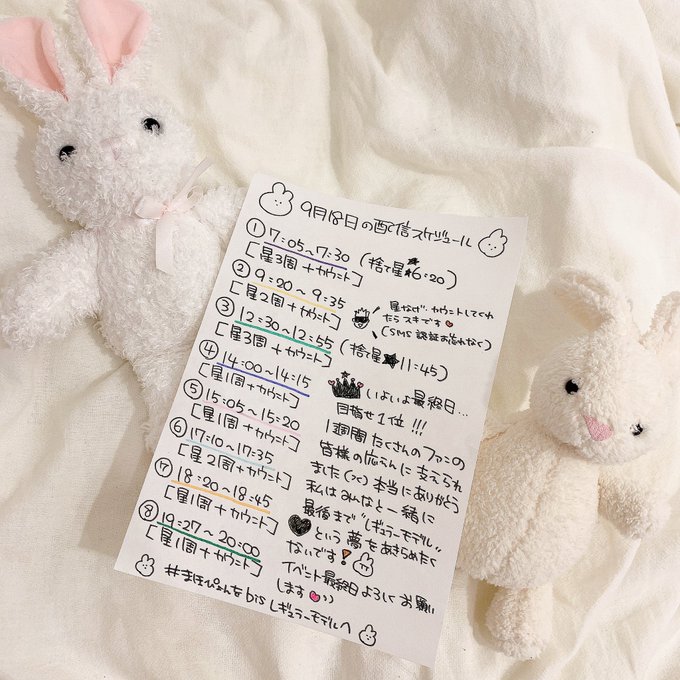 9月18日の配信スケジュール
① 7:05〜7:30 (捨て星★6:20)
[星3周+カウント]
② 9:20〜9:35
[星2周+カウント]
③ 12:30〜12:55 (捨て星★11:45)
[星3周+カウント]
④ 14:00〜14:15
[星1周+カウント]
⑤ 15:05〜15:20
[星1周+カウント]
⑥ 17:10〜17:35
[星2周+カウント]
⑦ 18:20〜18:45
[星1周+カウント]
⑧ 19:27〜20:00
[星1周+カウント]
星なげ、カウントしてくれ
たらスキです
(SMS認証お忘れなく)
いよいよ最終日...
目指せ1位!!!
1週間たくさんのファンの
皆様の応えんに支えられ
ました 本当にありがとう
私はみんなと一緒に
最後まで"レギュラーモデル"
という夢をあきらめたく
ないです!
イベント最終日よろしくお願い
します
#まほぴょんをbisレギュラーモデルへ